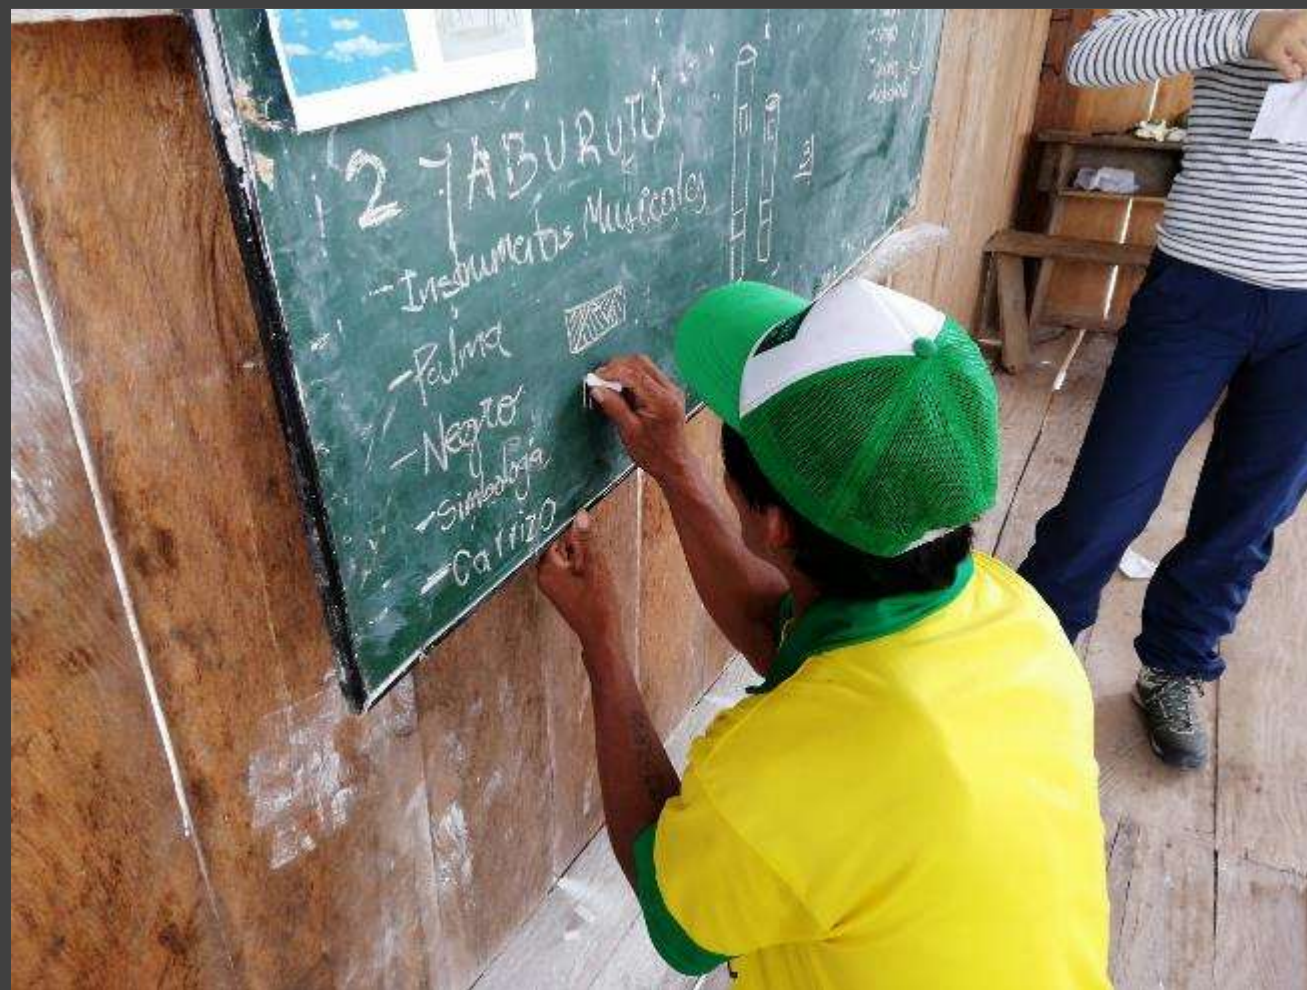 2 TABURUTÚ
- Instrumentos Musicales
- Palma
- Negro
- Simbología
- Carrizo